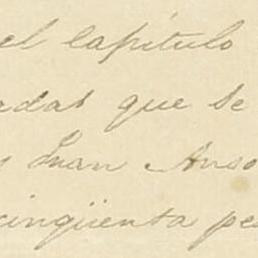 el capítulo
adas que se
Juan Anso
cinqüenta pe